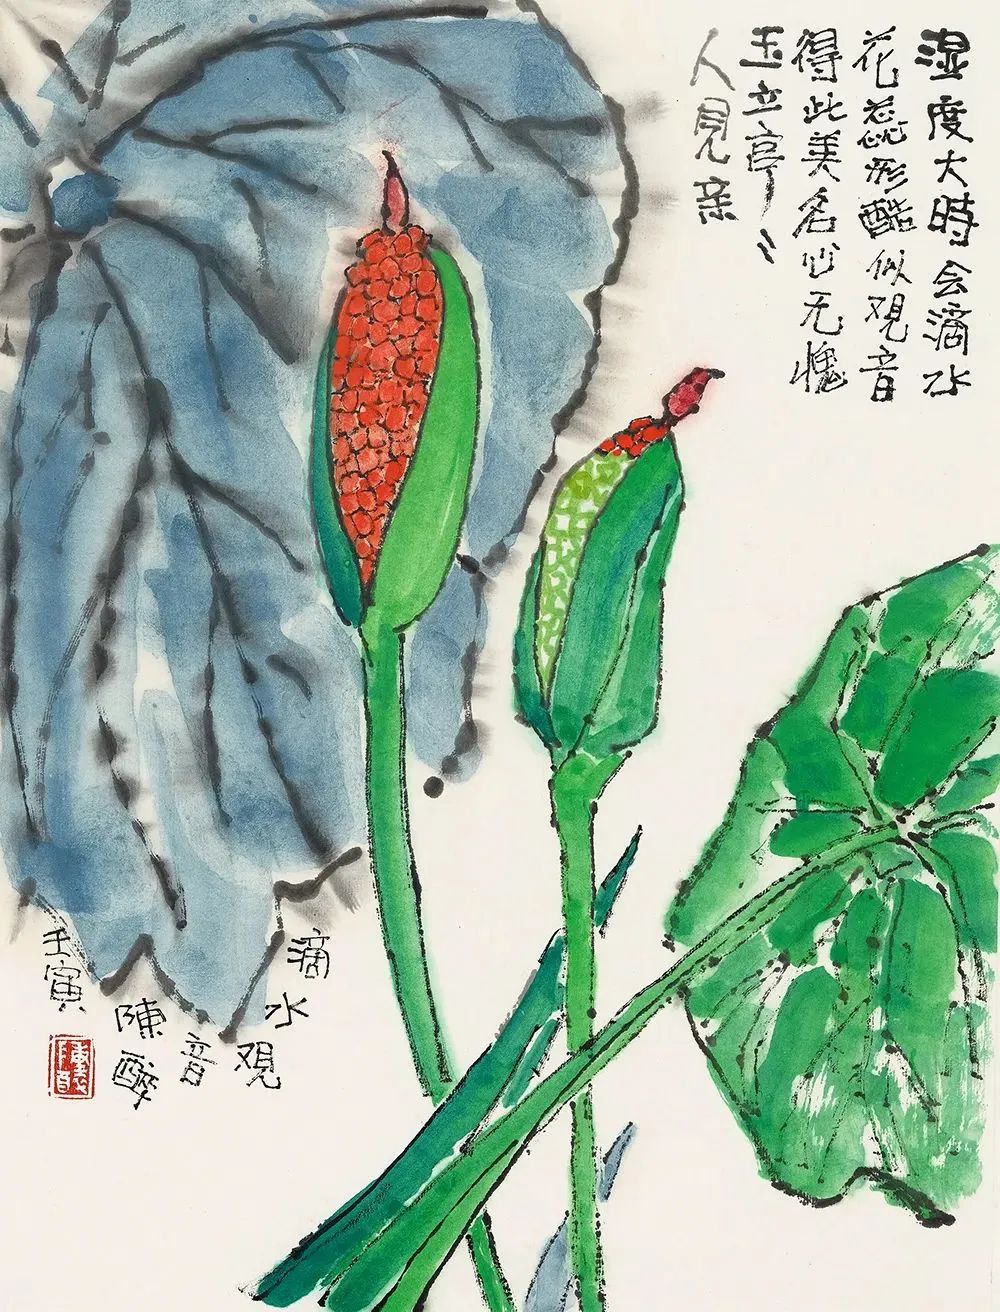 湿度大時会滴水
花蕊形酷似观音
得此美名心无愧
玉立亭〻
人見亲
滴水
观音
陳醉
壬寅